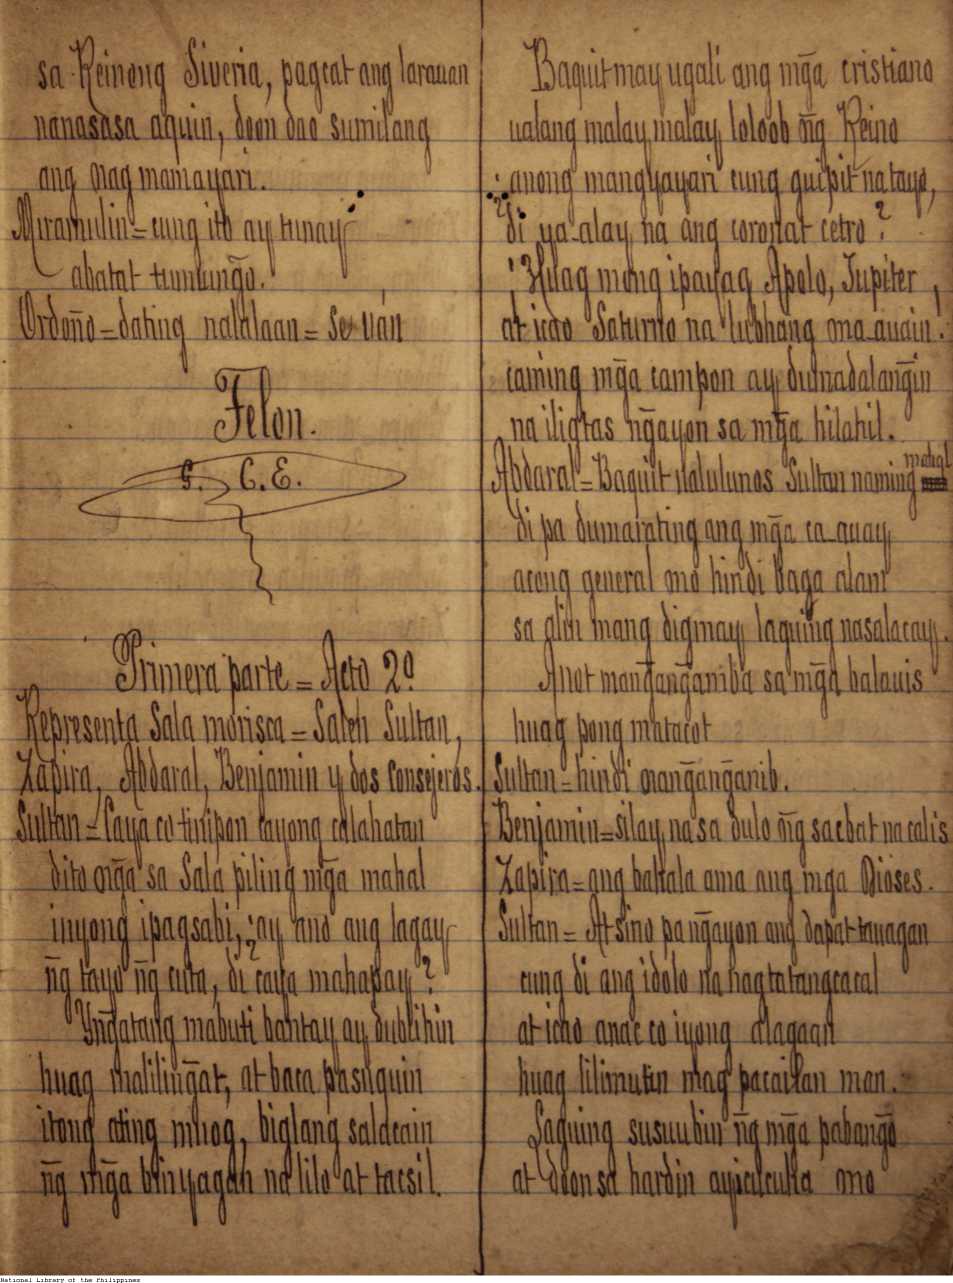 sa Reinong Siveria, pagcat ang larauan
nanasasa aquin, doon dao sumilang
ang nag mamayari.
Miramulin = cung ito ay tunay
abatat tumung̃o.
Ordoño = dating nalalaan = se ván
Felon.
G. C. E.
Primera parte = Acto 2º
Representa Sala morisca = Saleh Sultan,
Zapira, Abdaral, Benjamin y dos Consejeros.
Sultan = Caya co tinipon cayong calahatan
dito ng̃a sa Sala piling mg̃a mahal
inyong ipagsabi, ¿ay ano ang lagay
ñg tayo ñg cuta, di caya mahapay?
Yng̃atang mabuti bantay ay dublihin
huag maliling̃at, at baca pasuquin
itong ating muog, biglang saldcain
ñg mg̃a binyagan na lilo at tacsil.
Baquit may ugali ang mg̃a cristiano
ualang malay malay loloob ñg Reino
anong mangyayari cung guipit na tayo,
¿di ya-alay na ang coronat cetro?
¡Huag mong ipayag Apolo, Jupiter,
at icao Saturno na lubhang ma-auain!
caming mg̃a campon ay dumadalang̃in
na iligtas ng̃ayon sa mg̃a hilahil.
Abdaral = Baquit nalulunos Sultan naming mahal
di pa dumarating ang mg̃a ca-auay
acong general mo hindi baga alam
sa alin mang digmay laguing nasalacay.
Anot mang̃ang̃aniba sa mg̃a balauis
huag pong matacot
Sultan = hindi mang̃ang̃anib.
Benjamin = silay na sa dulo ñg sacbat na calis
Zapira = ang bahala ama ang mga Dioses.
Sultan = At sino pa ng̃ayon ang dapat tauagan
cung di ang idolo na nagtatangcacal
at icao anac co iyong alagaan
huag lilimutin mag pacailan man.
Laguing susuubin ñg mg̃a pabang̃o
at doon sa hardin ay mo